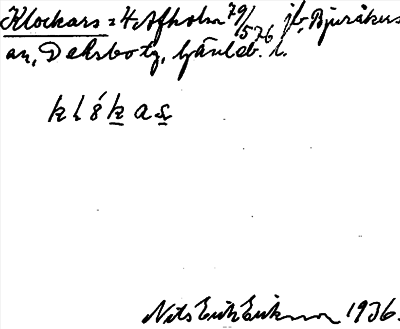 Klockars = 4 Afholm 79/576 jb, Bjuråkers
an, Delsbo tg, Gävleb. l.
klåkas
Nils Erik Eriksson 1936.